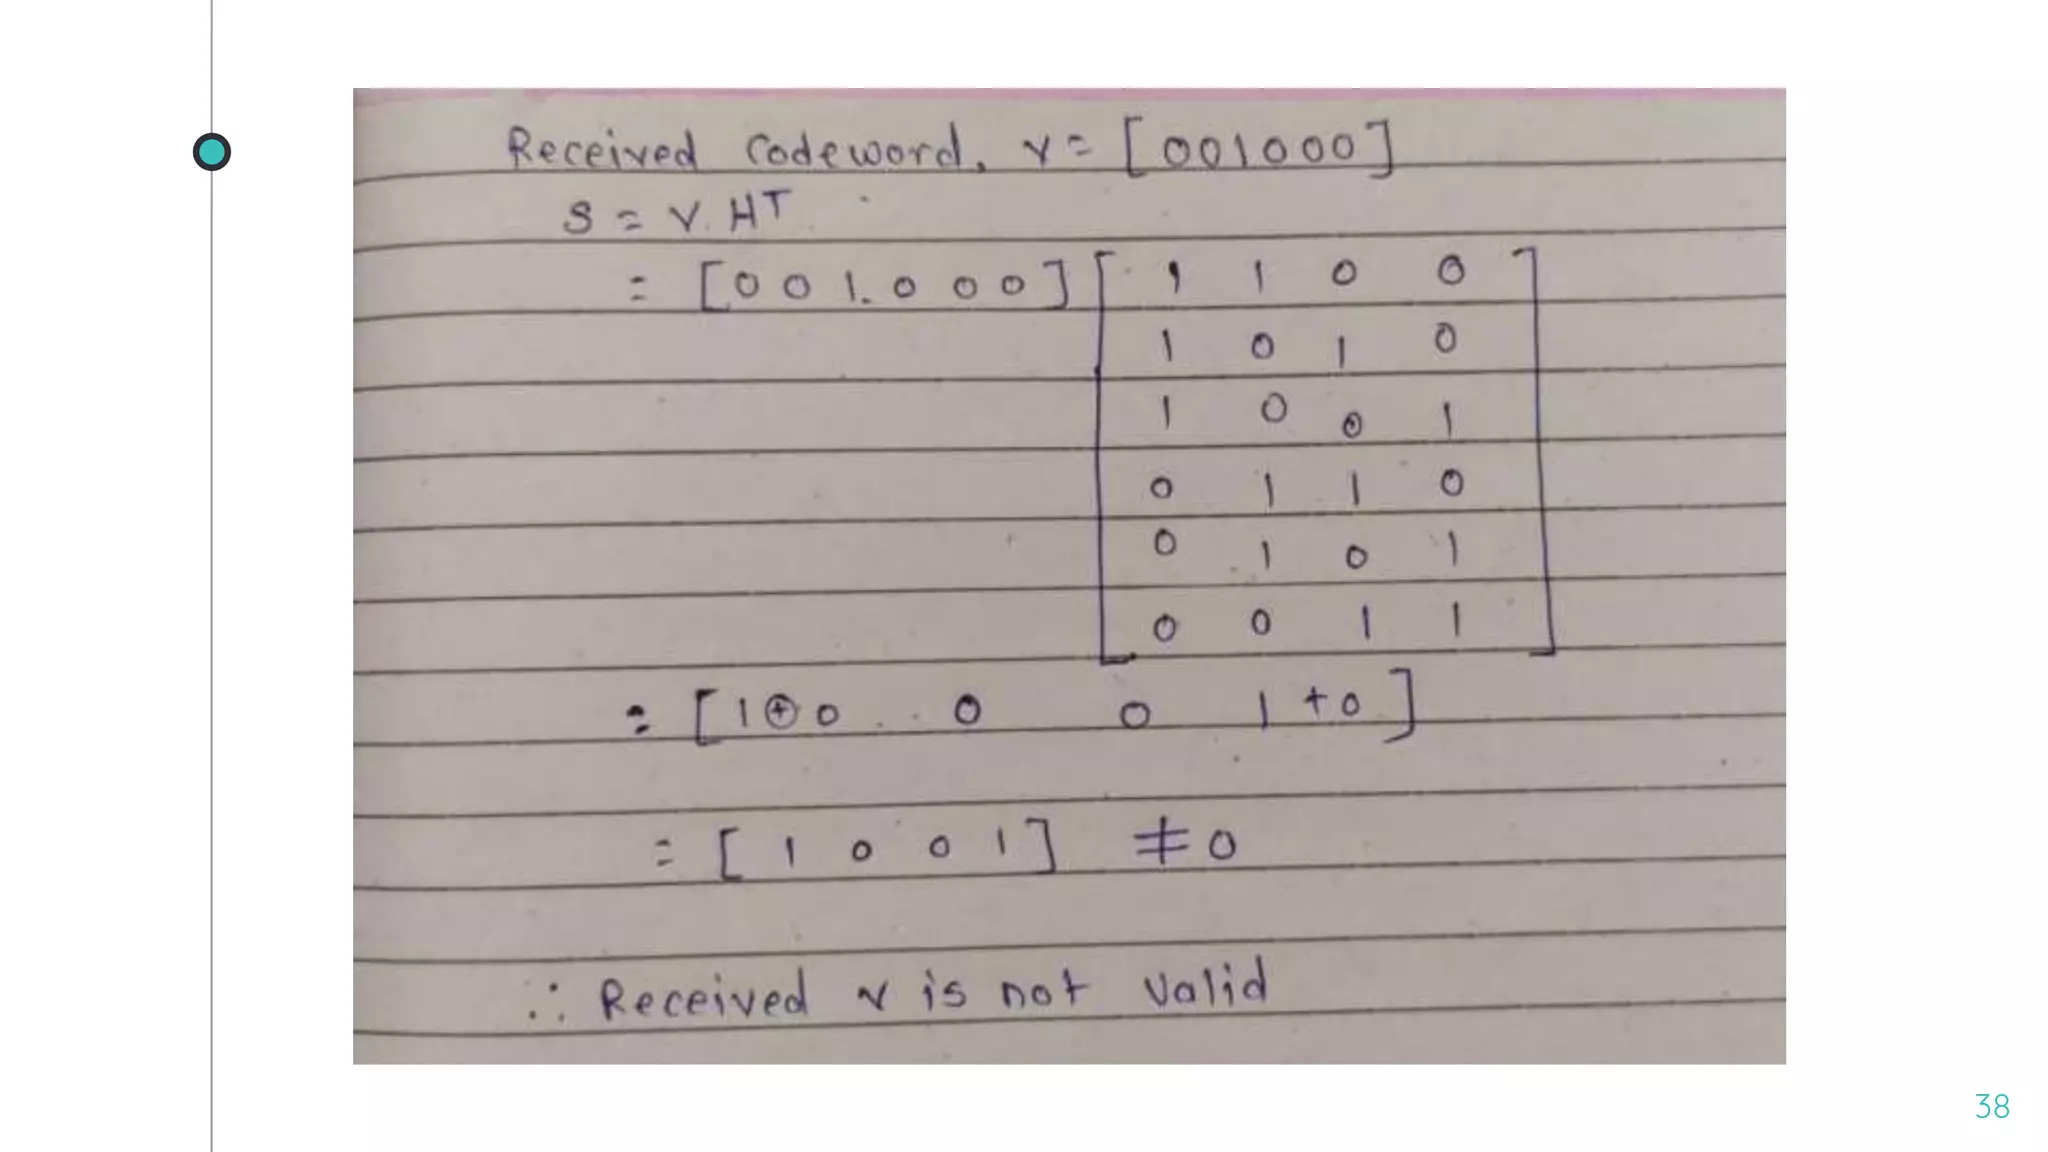 Received Codeword, r = [001000]
S = r. H^T
= [0 0 1. 0 0 0] [1 1 0 0
1 0 1 0
1 0 0 1
0 1 1 0
0 1 0 1
0 0 1 1]
= [1⊕0 0 0 1+0]
= [1 0 0 1] ≠ 0
∴ Received r is not valid
38